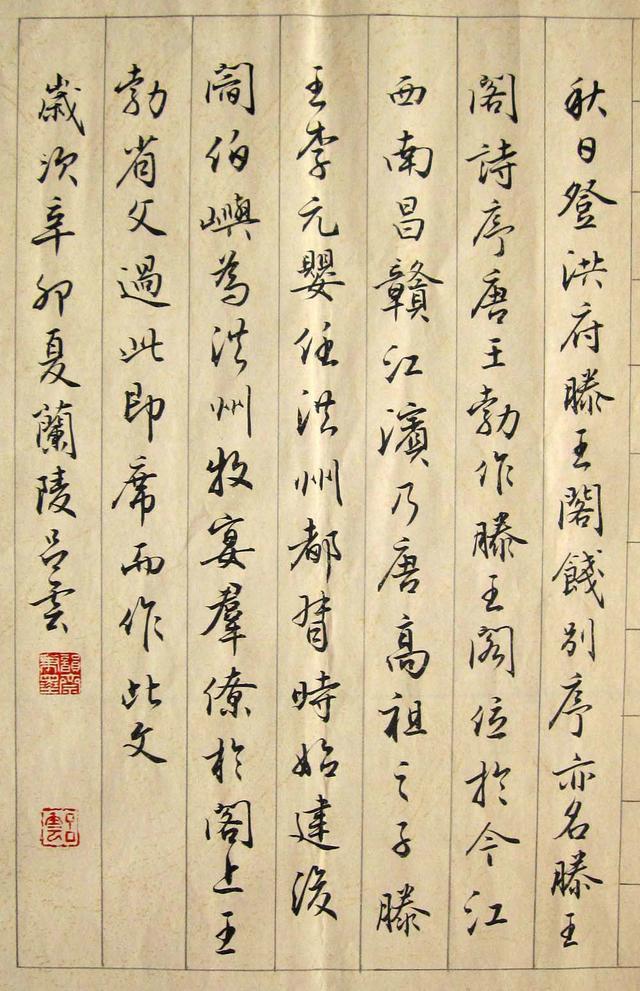 秋日登洪府滕王閣餞別序亦名滕王
閣詩序唐王勃作滕王閣位於今江
西南昌贛江濱乃唐高祖之子滕
王李元嬰任洪州都督時始建後
閻伯嶼為洪州牧宴羣僚於閣上王
勃省父過此即席而作此文
歲次辛卯夏蘭陵呂雲